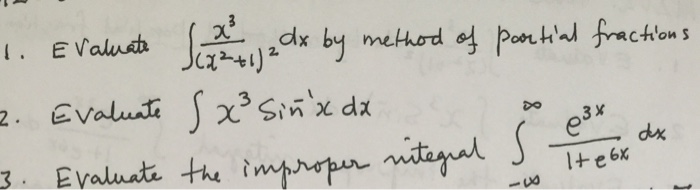 1. Evaluate ∫ x³/(x²+1)² dx by method of partial fractions
2. Evaluate ∫ x³ Sin⁻¹x dx
3. Evaluate the improper integral ∫_{-∞}^{∞} e^{3x}/(1+e^{6x}) dx